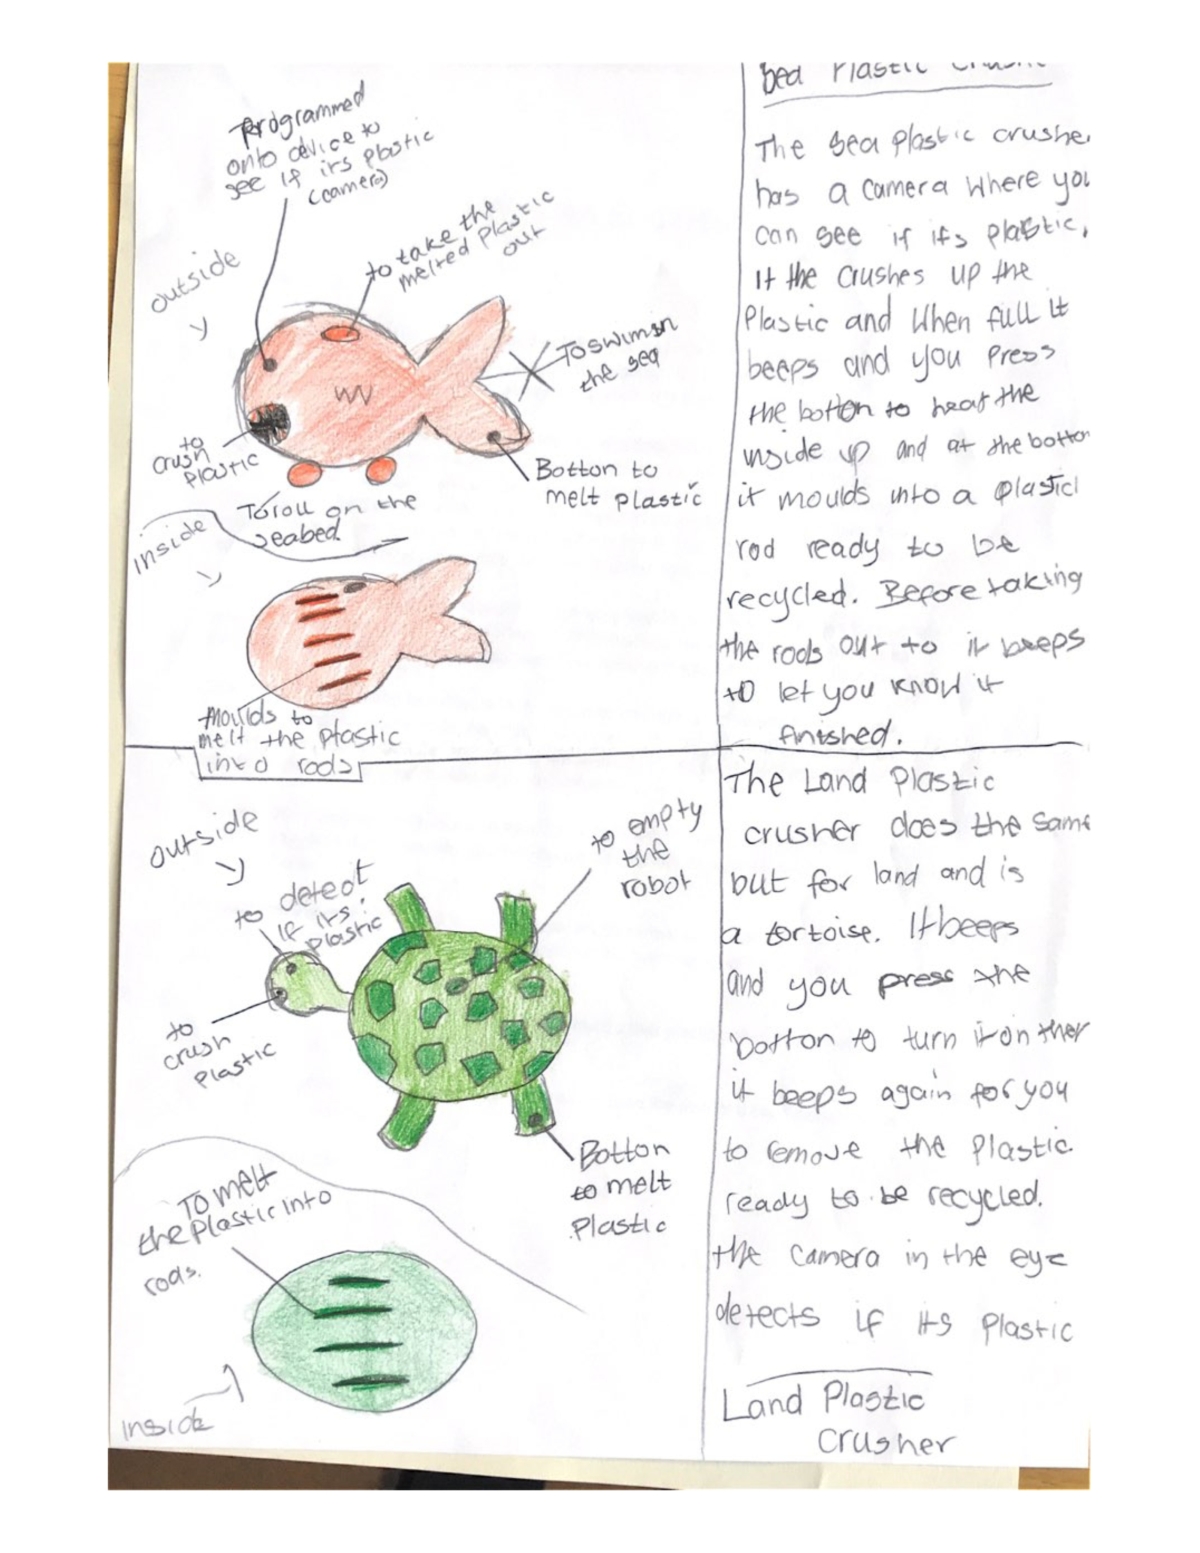 Programmed
onto device to
see if its plastic
(camera)
outside
to take the
melted Plastic
out
To swim in
the sea
to
crush
plastic
Botton to
melt plastic
To roll on the
seabed
inside
moulds to
melt the plastic
into rods
Sea Plastic Crushe
The Sea plastic crusher
has a camera where you
can see if its plastic,
It the crushes up the
Plastic and when full it
beeps and you press
the botton to heat the
inside up and at the botto
it moulds into a plastic
rod ready to be
recycled. Before taking
the rods out to it beeps
to let you know it
finished.
outside
to detect
if its
plastic
to empty
the
robot
to
crush
plastic
Botton
to melt
Plastic
To melt
the plastic into
rods.
inside
The Land Plastic
crusher does the same
but for land and is
a tortoise. It beeps
and you press the
botton to turn it on then
it beeps again for you
to remove the plastic
ready to be recycled.
the camera in the eye
detects if its plastic
Land Plastic
Crusher